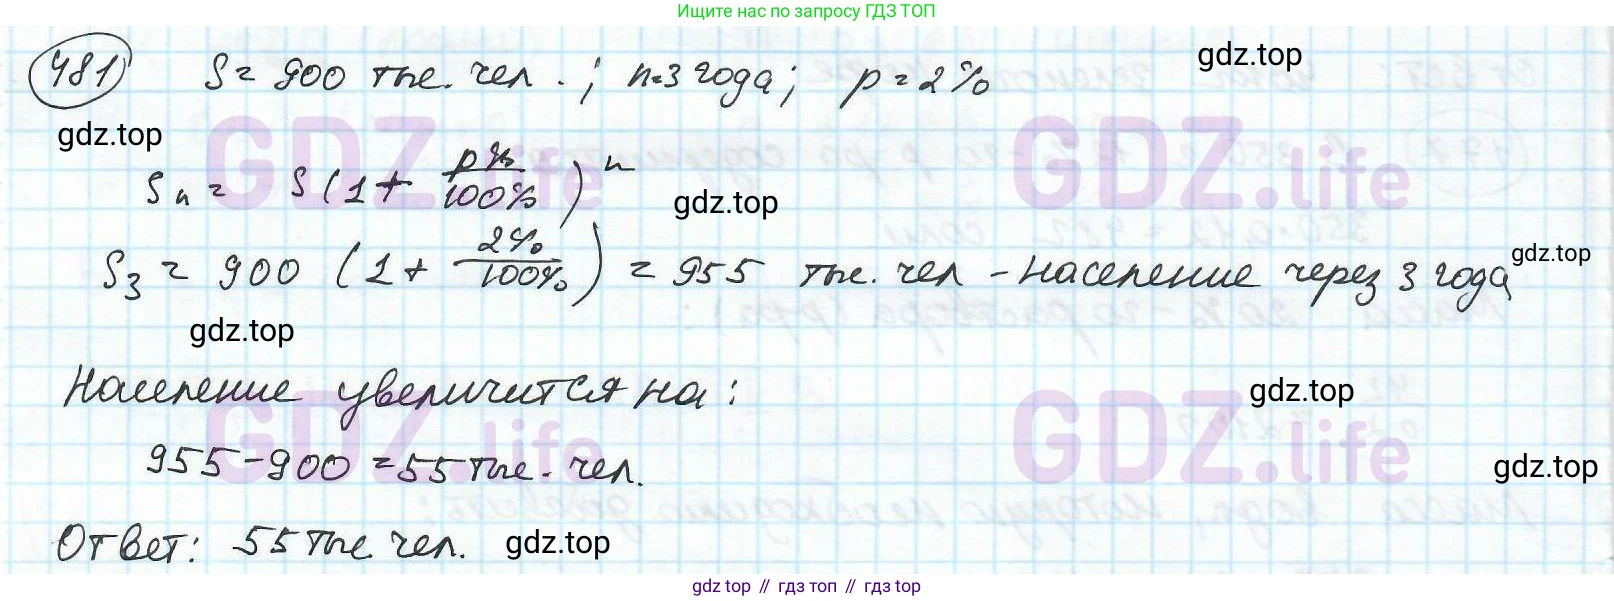 Ищите по запросу ГДЗ ТОП
481) S = 900 тыс. чел.; n=3 года; p = 2% gdz.top
gdz.top GDZ.life GDZ.life
Sₙ = S (1 + p%/100%)ⁿ gdz.top
S₃ = 900 (1 + 2%/100%) = 955 тыс. чел - население через 3 года gdz.top
gdz.top
Население увеличится на: gdz.top
GDZ.life GDZ.life
955 - 900 = 55 тыс. чел. gdz.top
Ответ: 55 тыс. чел. gdz.top
gdz top // гдз топ // gdz top